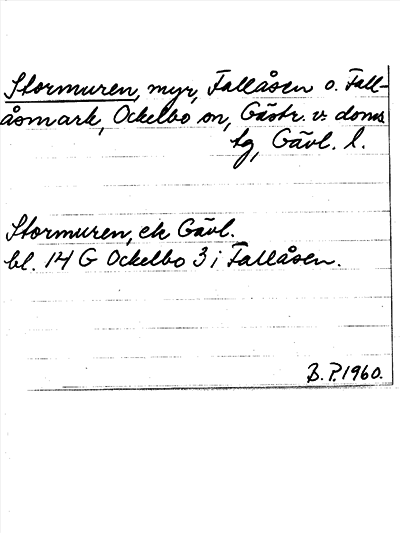 Stormuren, myr, Fallåsen o. Fall-
åsmark, Ockelbo sn, Gästr. v. doms
tg, Gävl. l.
Stormuren, ek Gävl.
bl. 14 G Ockelbo 3 i Fallåsen.
B. P. 1960.